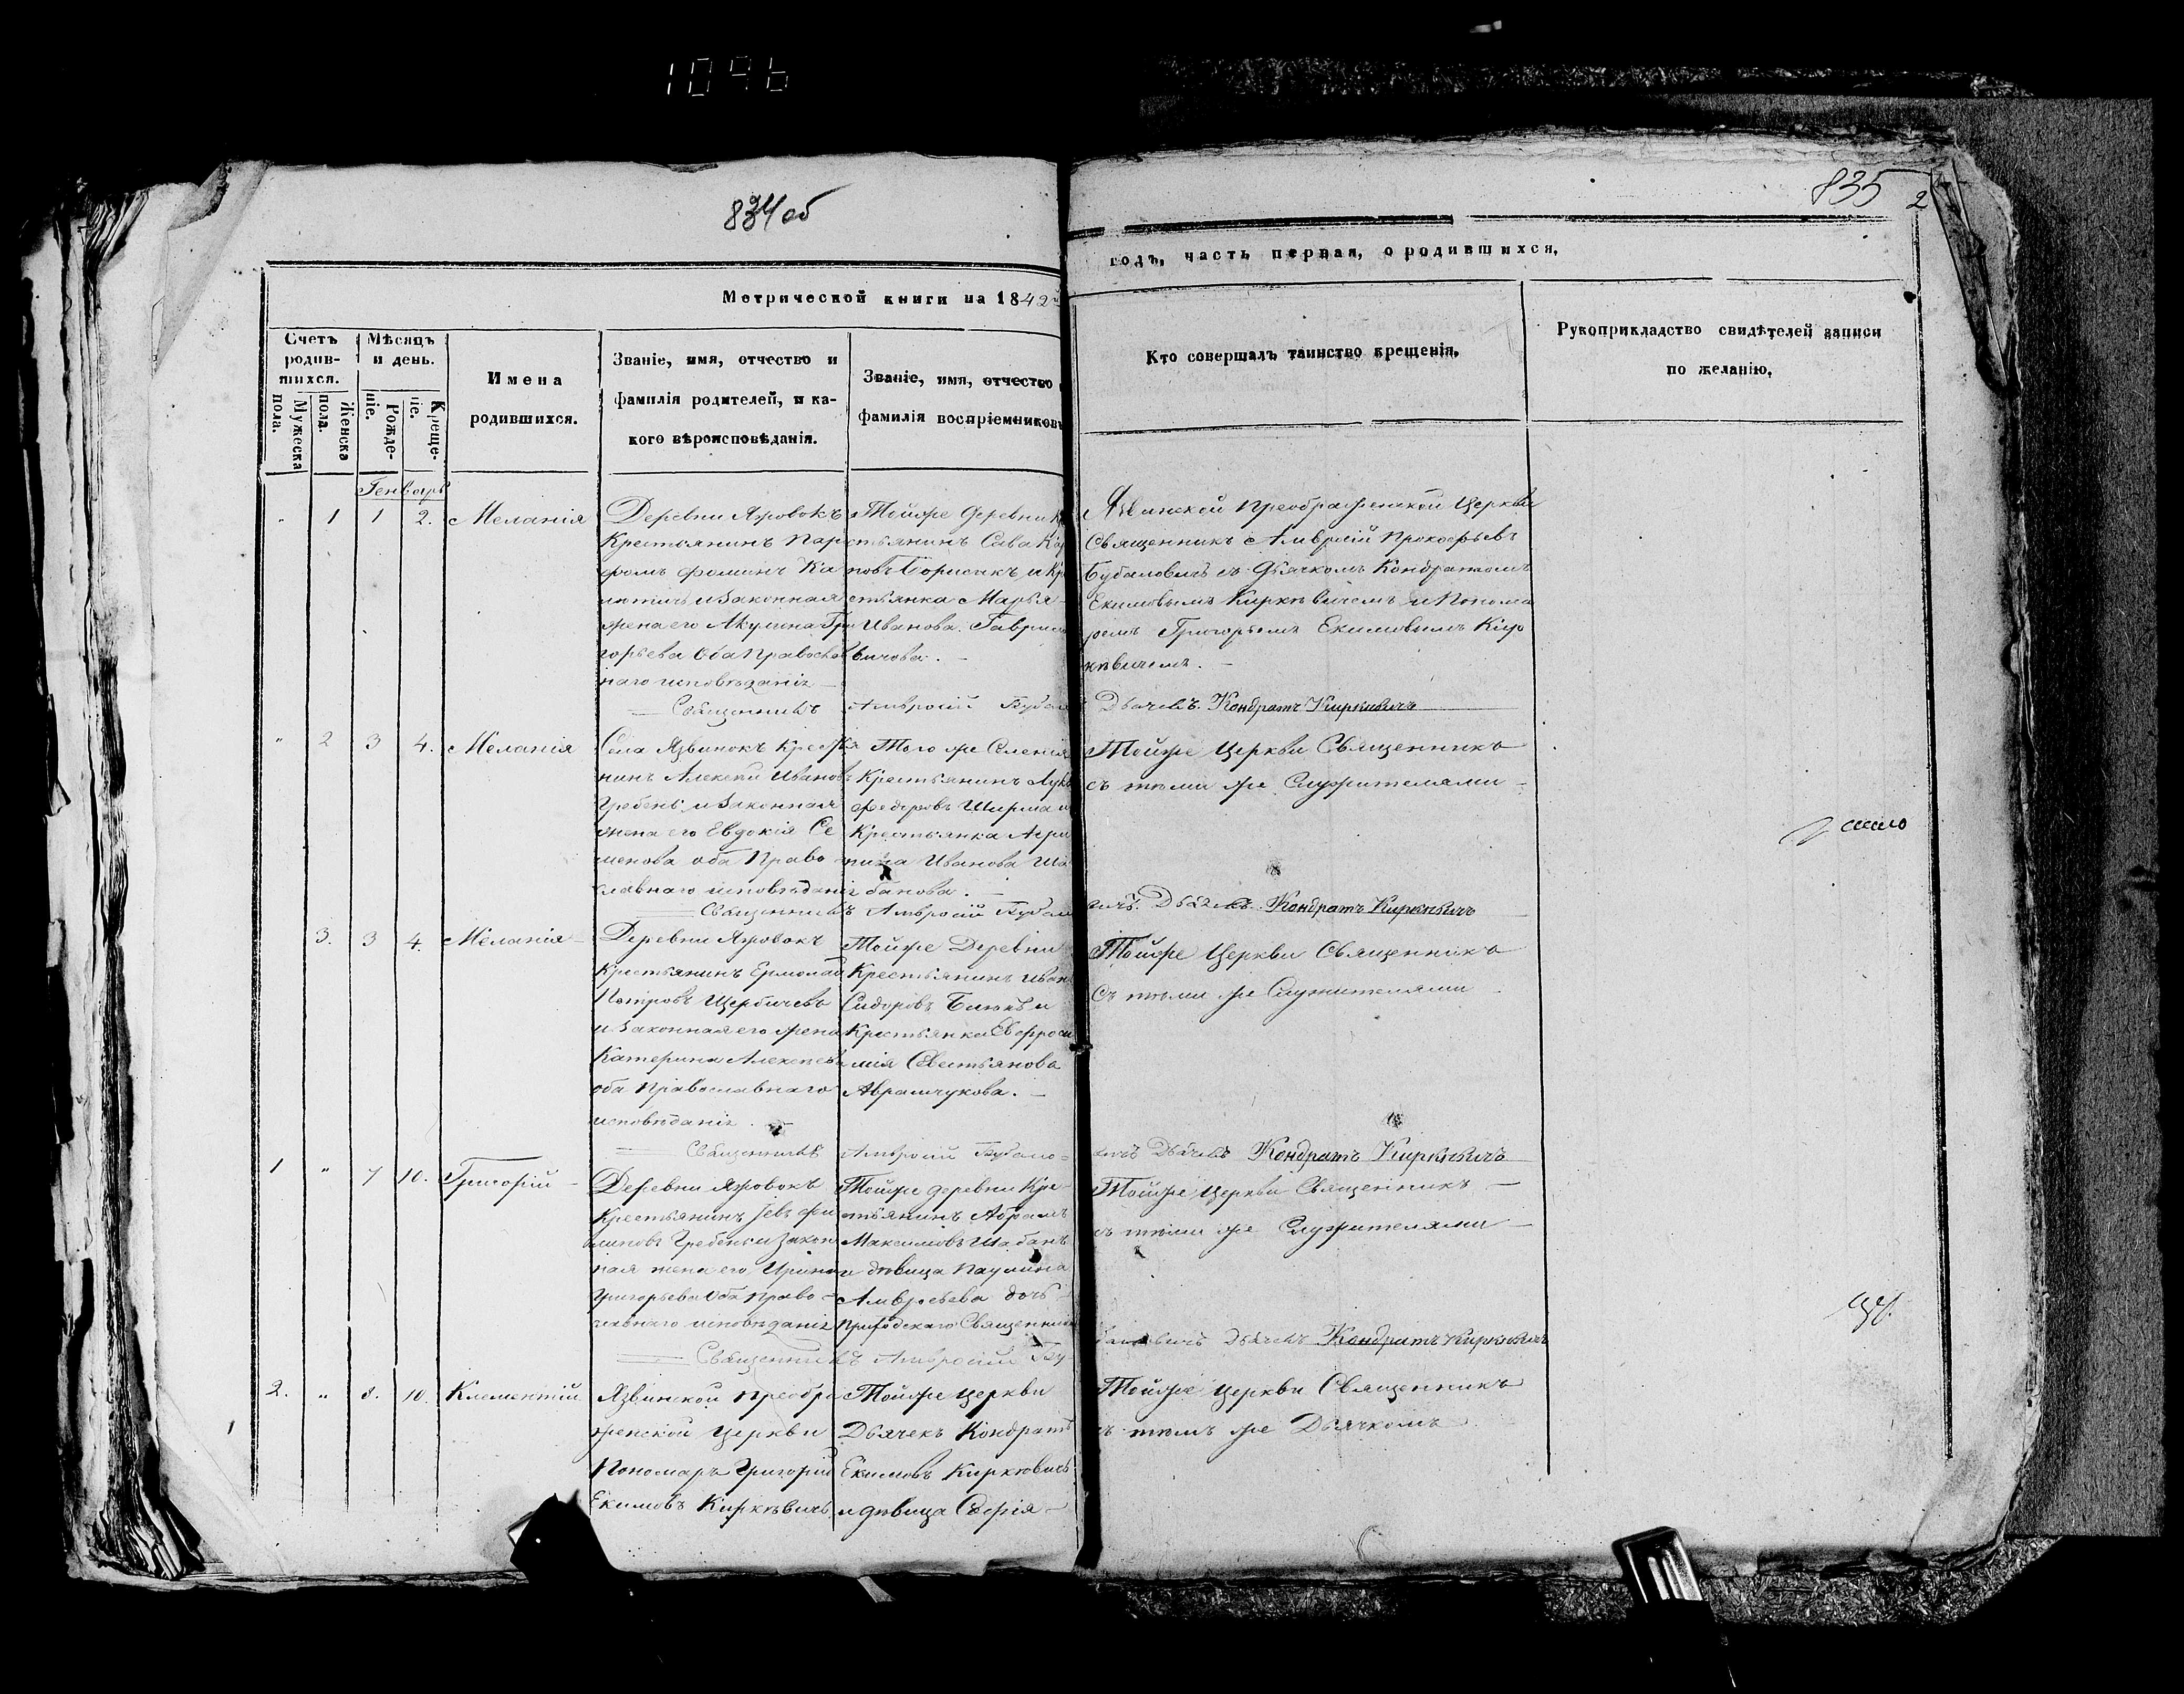 1096
834об
835 2
Метрической книги на 1842й
годъ, часть первая, о родившихся,
Счетъ родившихся.
Мужеска пола.
Женска пола.
Мѣсяцъ и день.
Рожденіе.
Крещеніе.
Имена родившихся.
Званіе, имя, отчество и
фамилія родителей, и ка-
кого вѣроисповѣданія.
Званіе, имя, отчество и
фамилія воспріемниковъ
Кто совершалъ таинство крещенія,
Рукоприкладство свидѣтелей записи
по желанію,
Генварь
" 1 1 2. Меланія
Деревни Яжовокъ
Крестьянинъ Пар
фомъ Фоминъ Ка
и Законная
жена его Акулина Гри
горьева Оба Православ
наго исповѣданія
Тойже деревни Кре
стьянинъ Сава Кар
повъ Борисикъ, и Кре
стьянка Марья
Иванова Гаврило
вичова.
Язвинской Преображенской Церкви
Священникъ Амвросій Прокофьевъ
Бубаловичъ съ Дьячкомъ Кондратомъ
Екимовымъ Киркѣвичемъ и Понома
ремъ Григорьемъ Екимовымъ Кир
кѣвичемъ.
Священникъ Амвросій Бубало
Дьячекъ. Кондратъ Киркѣвичъ
" 2 3 4. Меланія
Села Язвинокъ Крестья
нинъ Алексѣй Ивановъ
Гребень и Законная
жена его Евдокія Се
менова оба Право
славнаго исповѣданія
Того же Селенія
Крестьянинъ Лука
Федоровъ Ширма и
Крестьянка Агри
пина Иванова Ша
банова.
Тойже Церкви Священникъ
съ тѣми же Служителями
Священникъ Амвросій Бубало
вичъ. Дьячекъ. Кондратъ Киркѣвичъ
3. 3 4. Меланія
Деревни Яжовокъ
Крестьянинъ Ермолай
Петровъ Щербичевъ
и Законная его жена
Катерина Алексѣева
оба Православнаго
исповѣданія.
Тойже Деревни
Крестьянинъ Иванъ
Сидоровъ и
Крестьянка Евфроси
Севестьянова
Абрамчукова.
Тойже Церкви Священникъ
Съ тѣми же Служителями
Священникъ Амвросій Бубало-
вичъ Дьячекъ Кондратъ Киркѣвичъ
1 " 7 10. Григорій
Деревни Яжовокъ
Крестьянинъ Іевъ Фи
липовъ Гребень и Закон
ная жена его Ирина
Григорьева Оба Право-
славнаго исповѣданія
Тойже деревни Кре-
стьянинъ Абрамъ
Максимовъ Шабанъ
и дѣвица Паулина
Амвросьева дочь
Приходскаго Священника
Тойже Церкви Священникъ
съ тѣми же Служителями
Священникъ Амвросій Бу
баловичъ Дьячекъ Кондратъ Киркѣвичъ
2. " 8. 10. Климентій
Язвинской Преобра
женской Церкви
Пономарь Григорій
Екимовъ Киркѣвичъ
Тойже Церкви
Дьячекъ Кондратъ
Екимовъ Киркѣвичъ
и дѣвица Софія
Тойже Церкви Священникъ
съ тѣмъ же Дьячкомъ